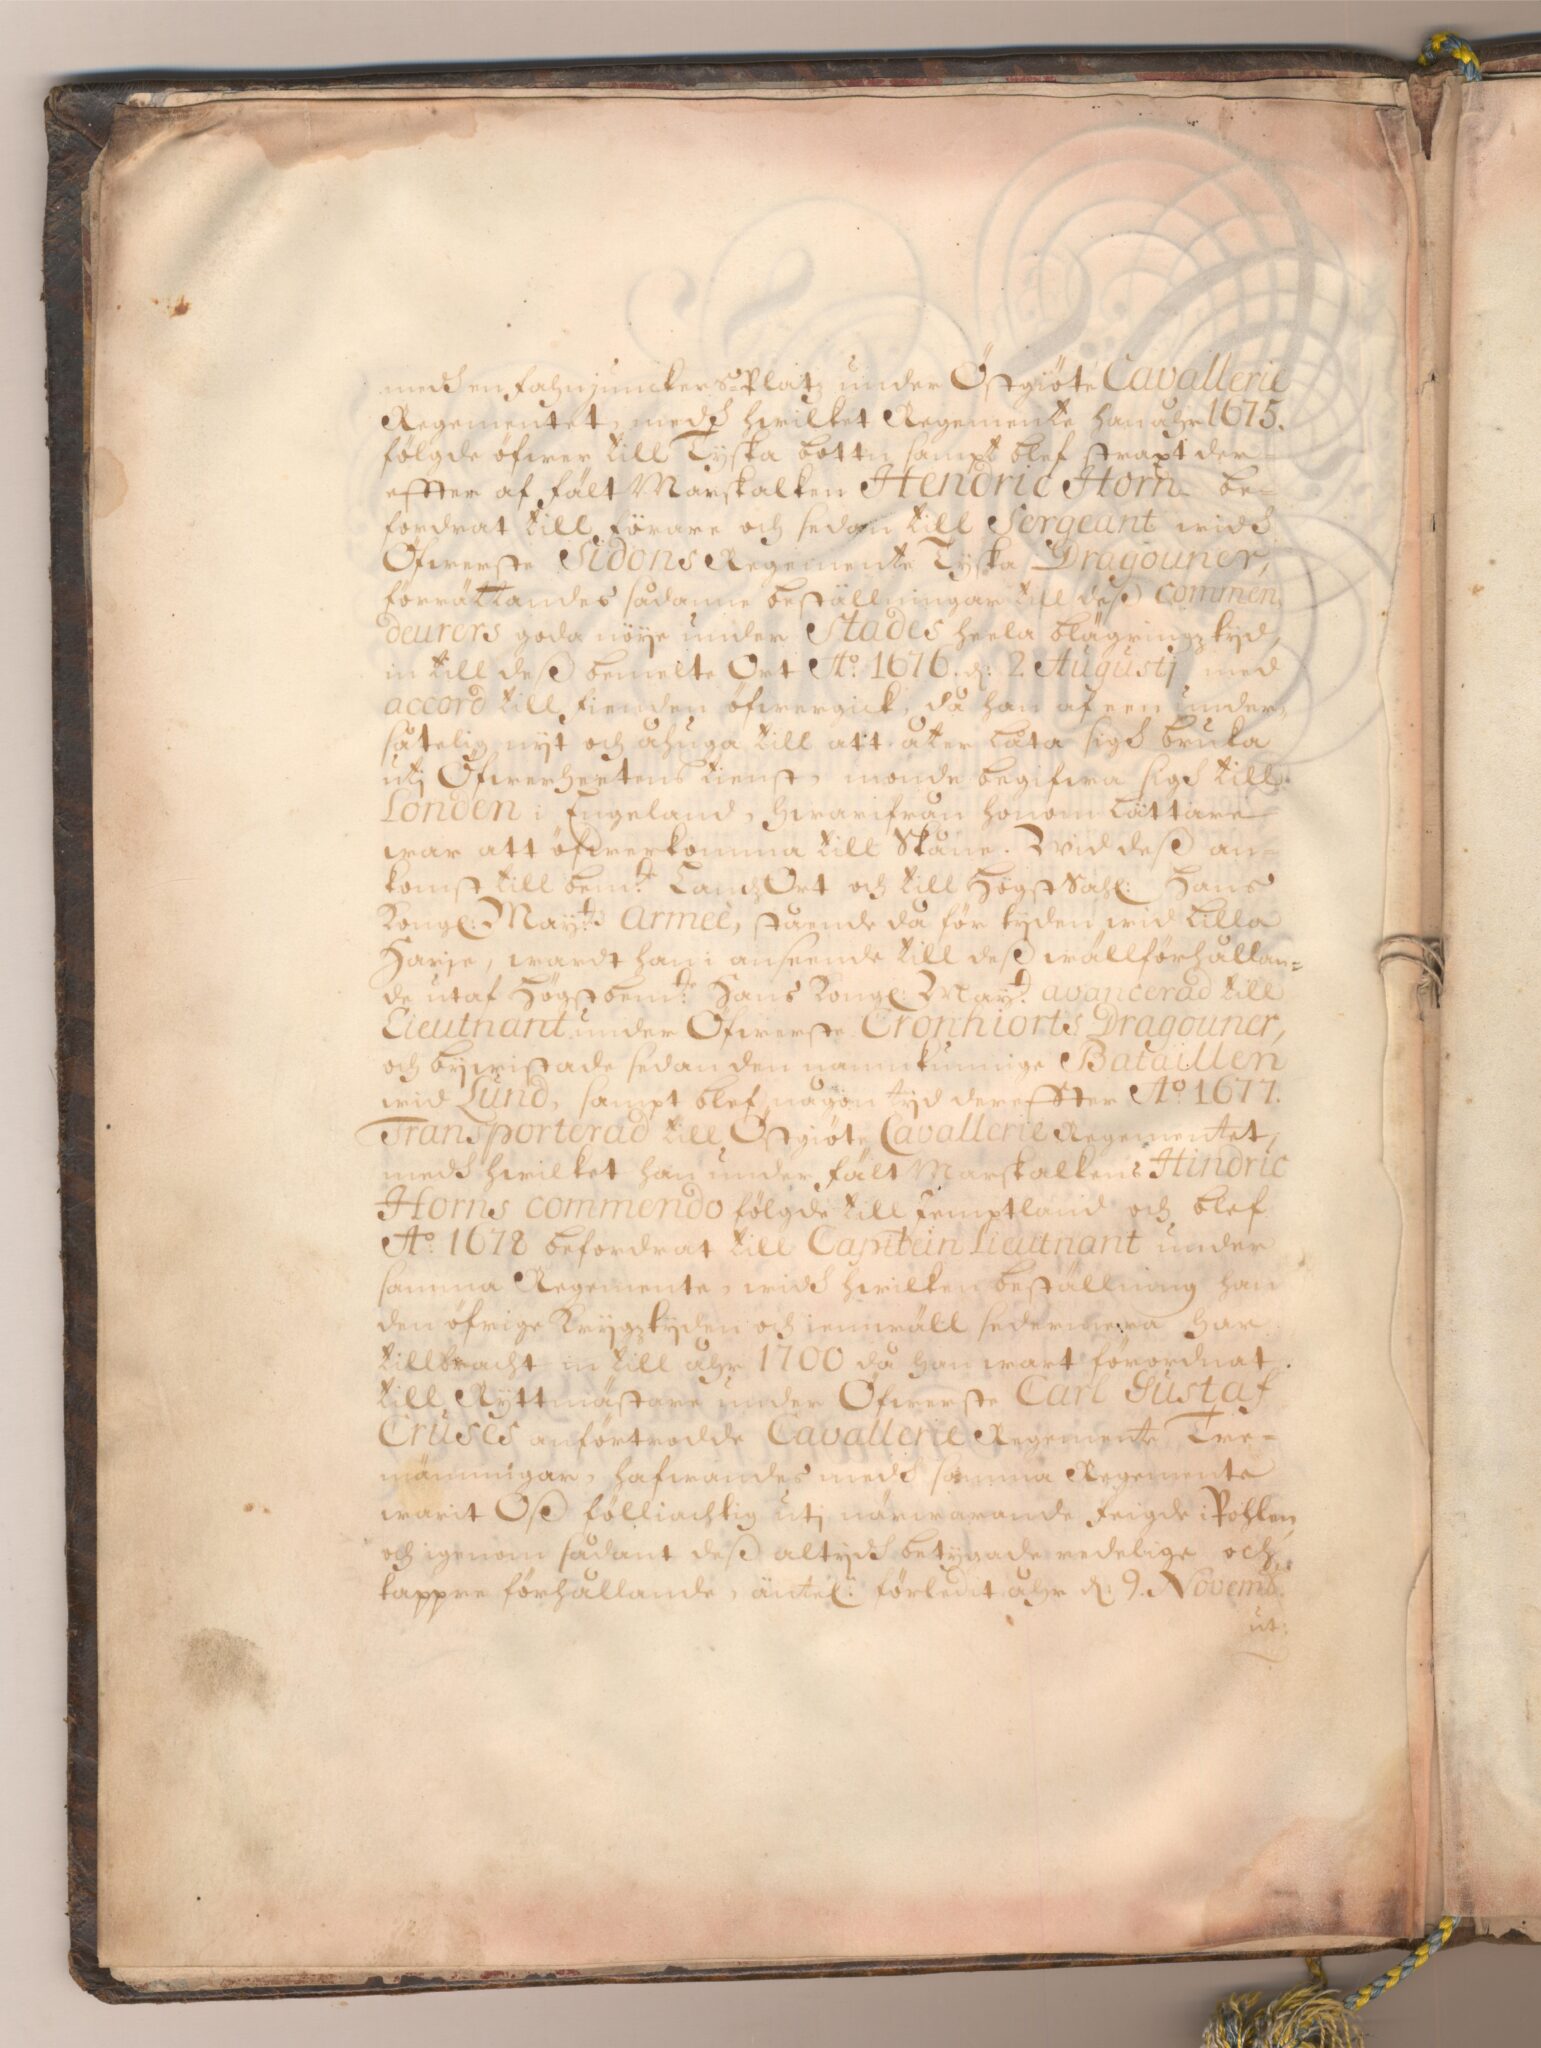 medh en Fahnjunckers Platz under Östgiöte Cavallerie
Regementet, medh hwilket Regemente han åhr 1675.
fölgde öfwer till Tyska bottn sampt blef straxt der-
effter af Fält Marskalken Hendric Horn be-
fordrat till Förare och sedan till Sergeant widh
Öfwerste Sidons Regemente Tyska Dragouner,
förrättandes sådanne beställningar till deß Commen-
deurers goda nöye under Stades heela blägringz tyd,
in till deß bemelte Ort Aº 1676. d: 2 Augustj med
accord till Fienden öfwergick, då han af een under-
såtelig nyt och åhuga till att åter låta sigh bruka
utj Öfwerheetens tienst, monde begifwa sigh till
Londen i Engeland, hwarifrån honom lättare
war att öfwerkomma till Skåne. Wid deß an-
komst till bem:te LandzOrt och till Högst Sahl: Hans
Kongl: May:tz Armeé, stående då för tyden wid Lilla
Harje, wardt han i anseende till deß wällförhållan-
de utaf Högstbem:te Hans Kongl: May:t avancerad till
Lieutnant under Öfwerste Cronhiorts Dragouner,
och bywistade sedan den namnkunnige Bataillen
wid Lund, sampt blef någon tyd dereffter Aº 1677.
Transporterad till Östgiöte Cavallerie Regementet,
medh hwilket han under Fält Marskalkens Hindric
Horns commendo fölgde till Jemptland och blef
Aº 1678 befordrat till Capitein Lieutnant under
samma Regemente, widh hwilken beställning han
den öfrige Krygztyden och iemwäll sedermera har
tillbracht in till åhr 1700 då han wart förordnat
till Ryttmästare under Öfwerste Carl Gustaf
Cruses anförtrodde Cavallerie Regemente Tre-
männingar, hafwandes medh samma Regemente
warit Oß fölliachtig utj närwarande Feigde i Pohlen,
och igenom sådant deß altydh betygade redelige och
tappre förhållande, äntel: förledit åhr d: 9. Novemb.
ut: